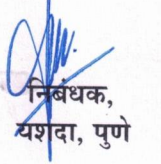 निबंधक,
यशदा, पुणे